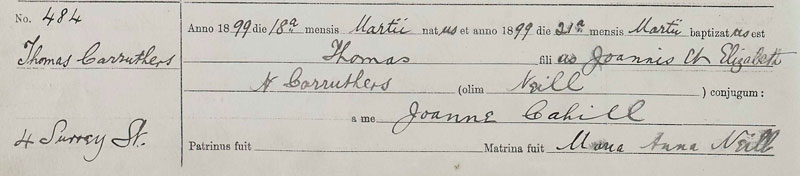 No. 484
Thomas Carruthers
4 Surrey St.
Anno 1899 die 18ª mensis Martii natus et anno 1899 die 21ª mensis Martii baptizatus est
Thomas fili us Joannis Ch Elizabeth
Carruthers (olim Neill ) conjugum :
a me Joanne Cahill
Patrinus fuit Matrina fuit Maria Anna Neill